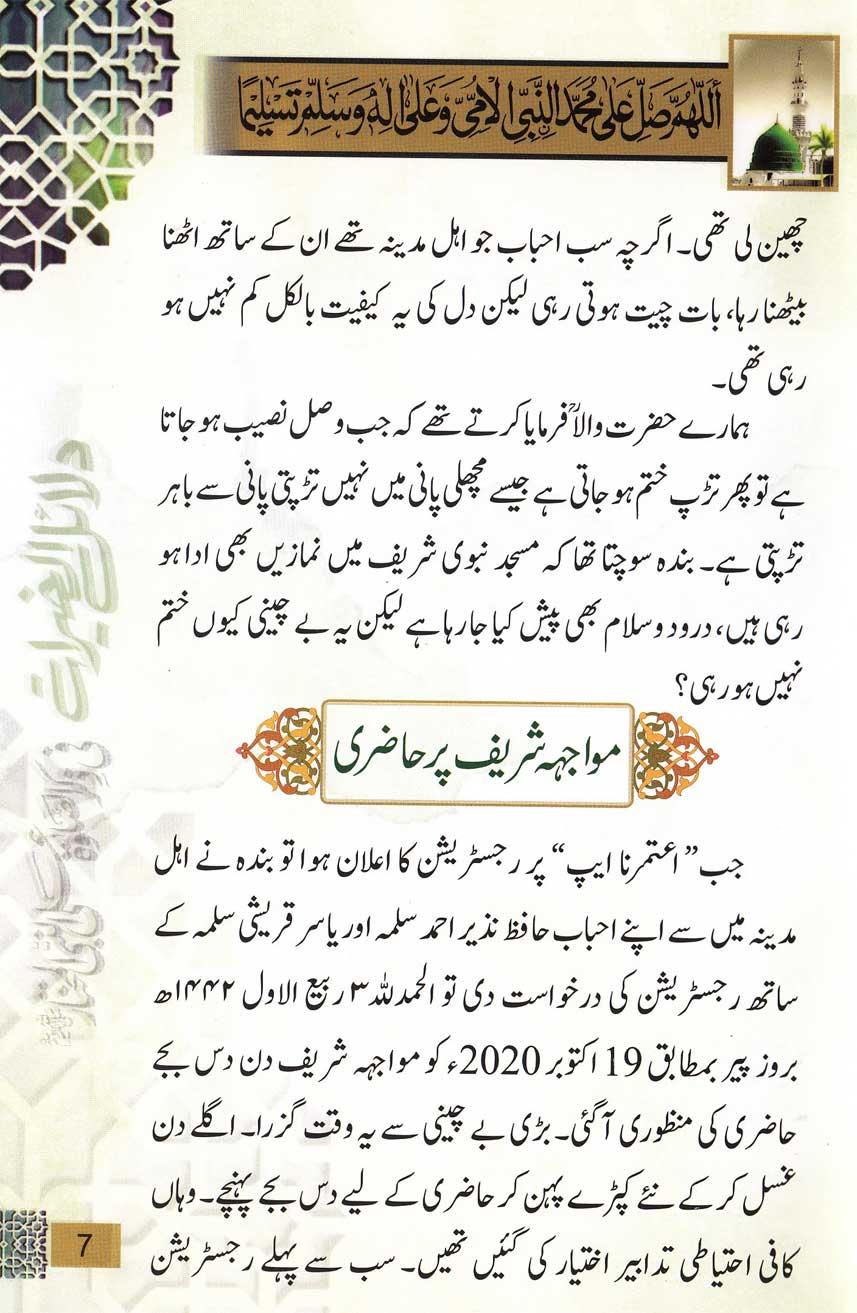 اَللّٰهُمَّ صَلِّ عَلٰى مُحَمَّدِ النَّبِيِّ الْاُمِّيِّ وَعَلٰى اٰلِهٖ وَسَلِّمْ تَسْلِيْمًا
چھین لی تھی۔ اگرچہ سب احباب جو اہل مدینہ تھے ان کے ساتھ اٹھنا
بیٹھنا رہا، بات چیت ہوتی رہی لیکن دل کی یہ کیفیت بالکل کم نہیں ہو
رہی تھی۔
ہمارے حضرت والاؒ فرمایا کرتے تھے کہ جب وصل نصیب ہو جاتا
ہے تو پھر تڑپ ختم ہو جاتی ہے جیسے مچھلی پانی میں نہیں تڑپتی پانی سے باہر
تڑپتی ہے۔ بندہ سوچتا تھا کہ مسجد نبوی شریف میں نمازیں بھی ادا ہو
رہی ہیں، درود و سلام بھی پیش کیا جا رہا ہے لیکن یہ بے چینی کیوں ختم
نہیں ہو رہی؟
مواجہہ شریف پر حاضری
جب ”اعتمرنا ایپ“ پر رجسٹریشن کا اعلان ہوا تو بندہ نے اہل
مدینہ میں سے اپنے احباب حافظ نذیر احمد سلمہ اور یاسر قریشی سلمہ کے
ساتھ رجسٹریشن کی درخواست دی تو الحمدللہ ۳ ربیع الاول ۱۴۴۲ھ
بروز پیر بمطابق 19 اکتوبر 2020ء کو مواجہہ شریف دن دس بجے
حاضری کی منظوری آگئی۔ بڑی بے چینی سے یہ وقت گزرا۔ اگلے دن
غسل کر کے نئے کپڑے پہن کر حاضری کے لیے دس بجے پہنچے۔ وہاں
کافی احتیاطی تدابیر اختیار کی گئیں تھیں۔ سب سے پہلے رجسٹریشن
دلائل الخیرات
7